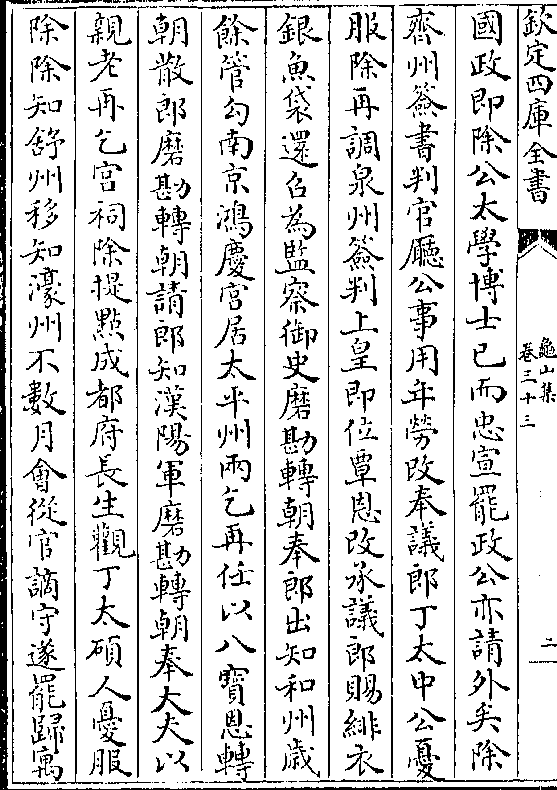 欽定四庫全書
龜山集
卷三十三
二
國政即除公太學博士已而忠宣罷政公亦請外矣除
齊州簽書判官㕔公事用年勞改奉議郎丁太中公憂
服除再調泉州簽判上皇即位覃恩改承議郎賜緋衣
銀魚袋還召為監察御史磨勘轉朝奉郎出知和州歲
餘管勾南京鴻慶宫居太平州兩乞再任以八寶恩轉
朝散郎磨勘轉朝請郎知漢陽軍磨勘轉朝奉大夫以
親老再乞宫祠除提點成都府長生觀丁太碩人憂服
除除知舒州移知濠州不數月會從官謫守遂罷歸寓